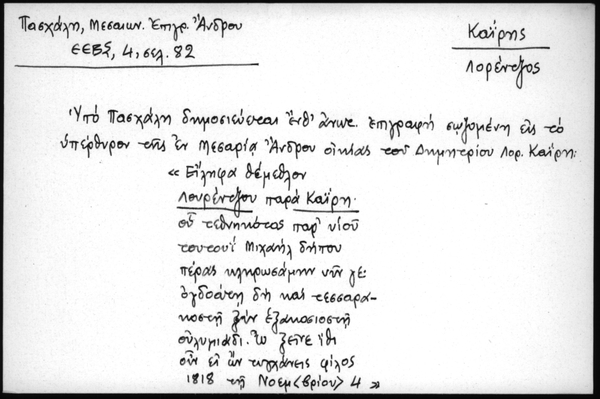 Πασχάλη, Μεσαιων. Ἐπιγρ. Ἄνδρου
ΕΕΒΣ, 4, σελ. 82
Καΐρης
Λορέντζος
Ὑπὸ Πασχάλη δημοσιεύεται ἔνθ' ἄνωτ. ἐπιγραφὴ σῳζομένη εἰς τὸ
ὑπέρθυρον τῆς ἐν Μεσαριᾷ Ἄνδρου οἰκίας τοῦ Δημητρίου Λορ. Καΐρη:
« Εἴληφα θέμεθλον
Λουρέντζου παρὰ Καΐρη·
οὗ τεθνηκότος παρ' υἱοῦ
τουτουῒ Μιχαὴλ δήπου
πέρας κληρωσάμην νῦν γε:
ὀγδοάτη δὴ καὶ τεσσαρα-
κοστῇ ξὺν ἑξακοσιοστῇ
οὐλυμιάδι. Ὦ ξεῖνε ἴθι
οὖν εἰ ὢν τυγχάνεις φίλος
1818 τῇ Νοεμ<βρίου> 4 »